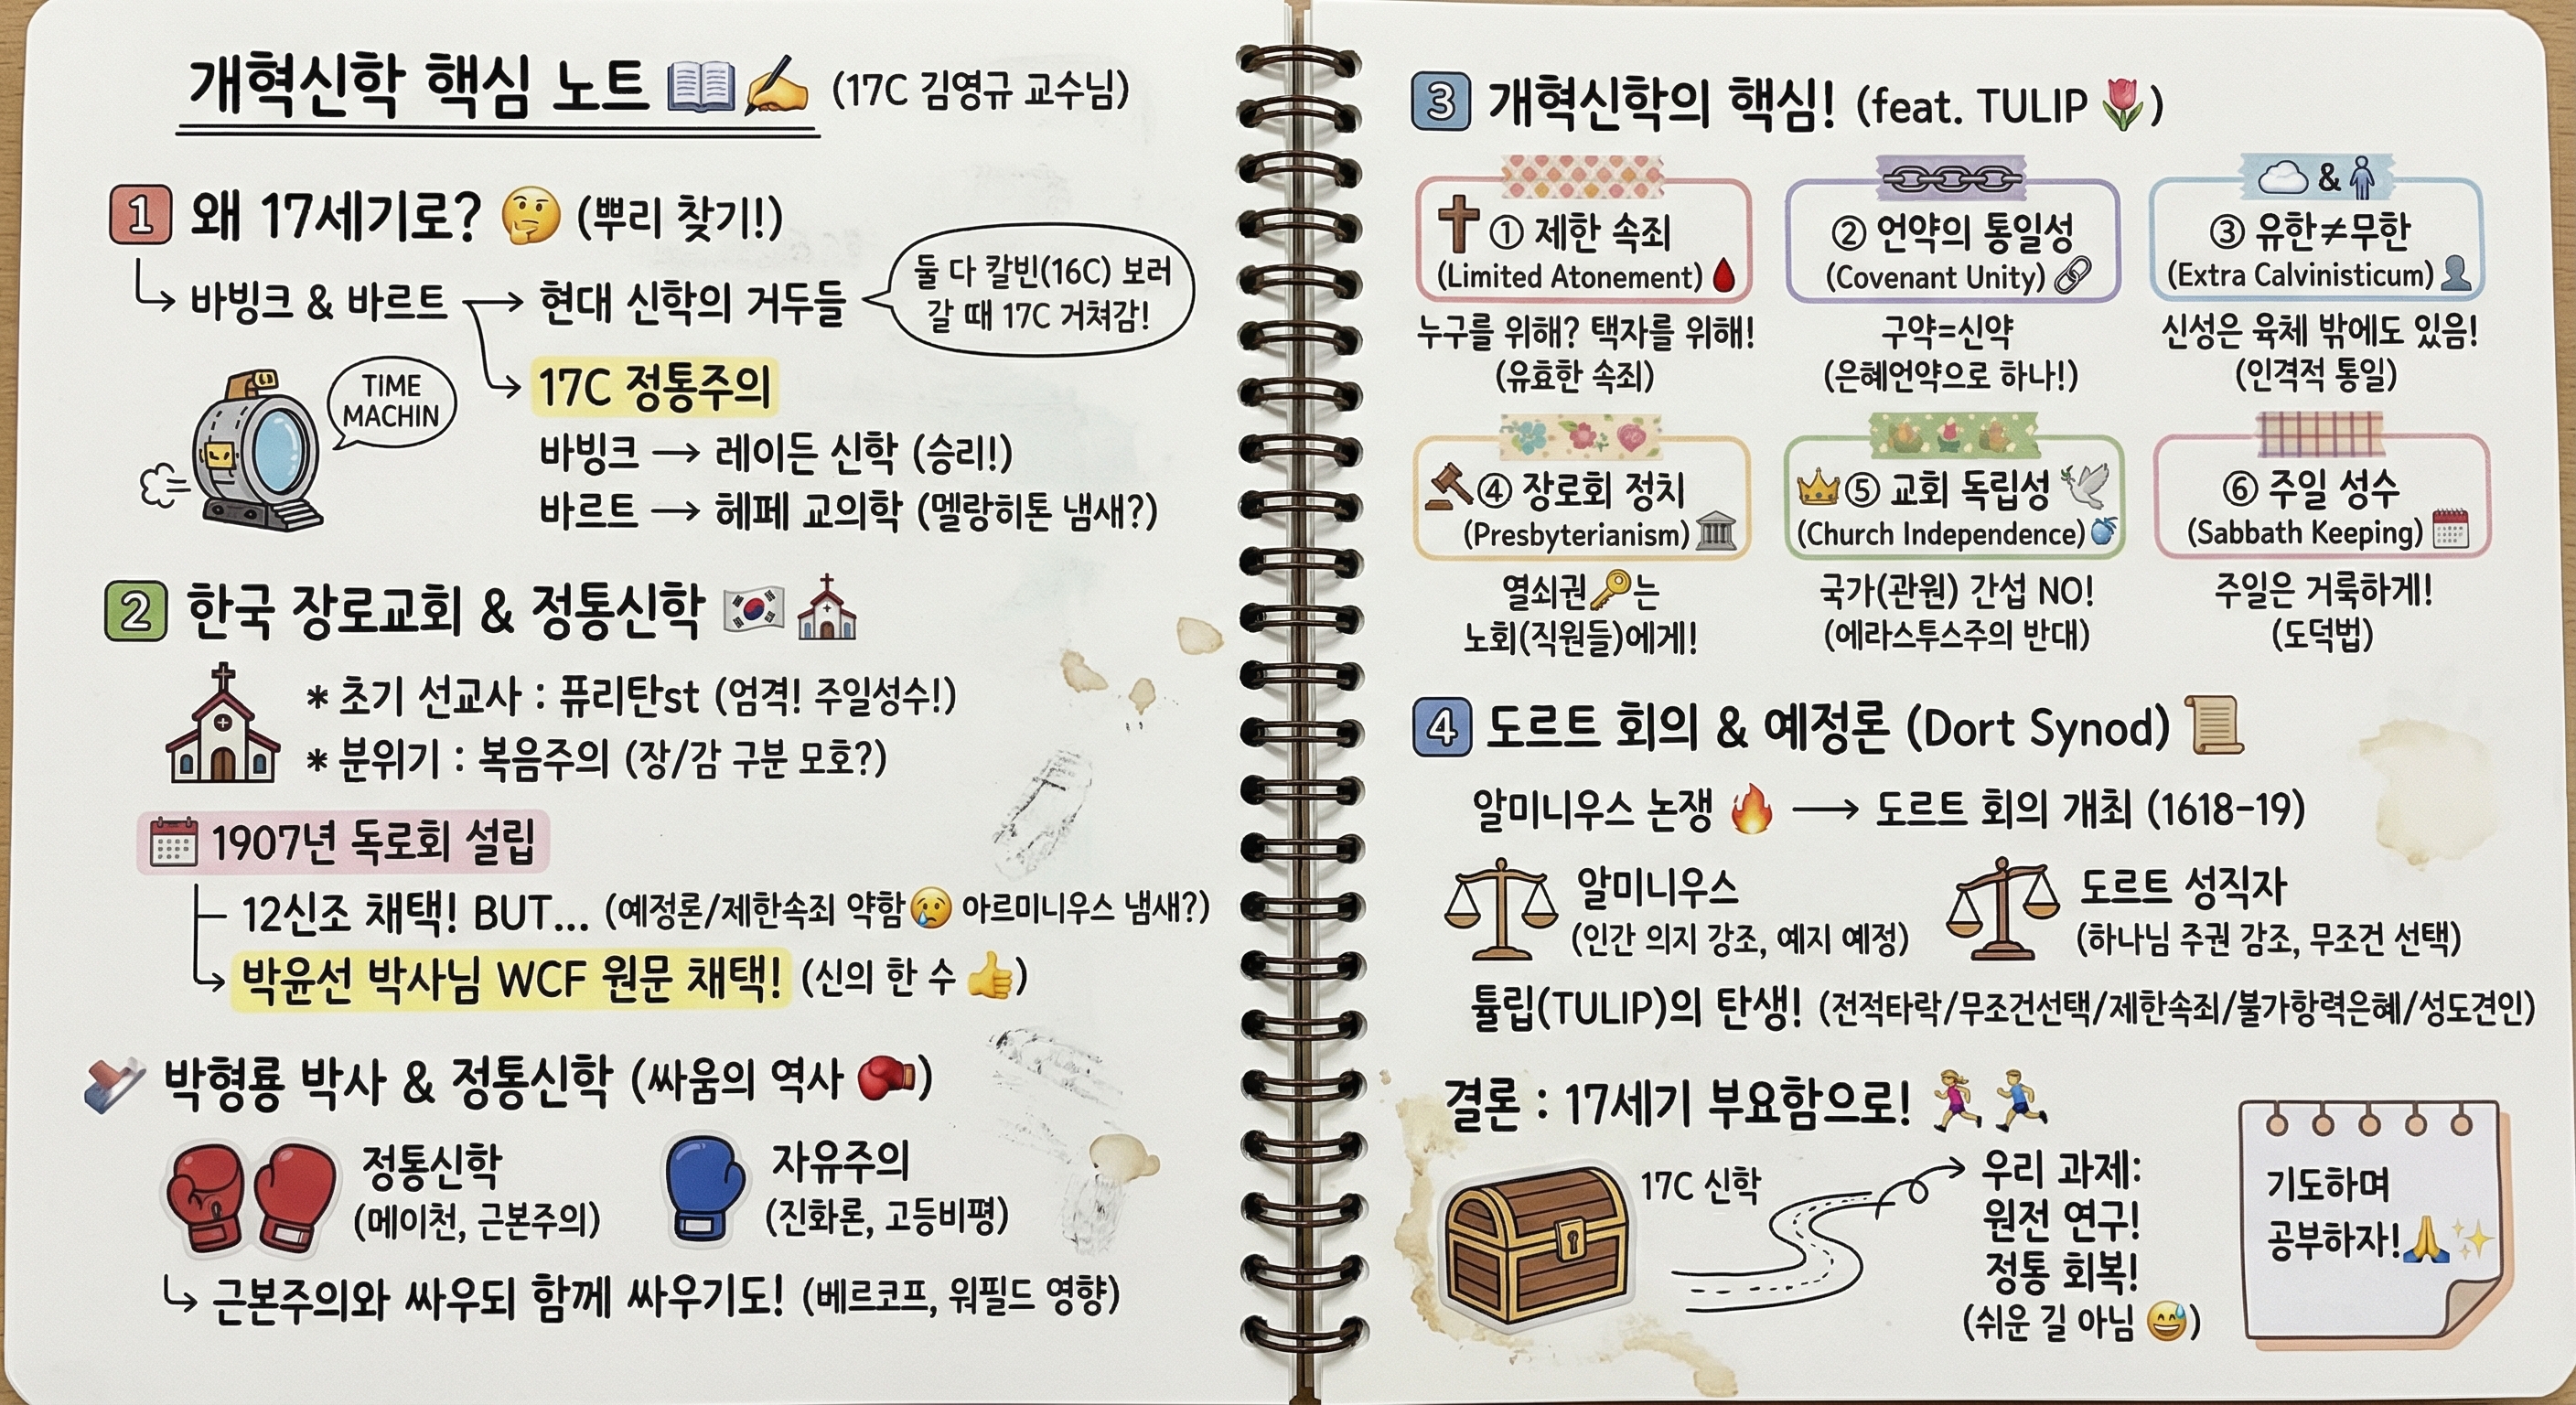 개혁신학 핵심 노트 (17C 김영규 교수님)
1 왜 17세기로? (뿌리 찾기!)
바빙크 & 바르트 → 현대 신학의 거두들
둘 다 칼빈(16C) 보러
갈 때 17C 거쳐감!
17C 정통주의
TIME
MACHIN
바빙크 → 레이든 신학 (승리!)
바르트 → 헤페 교의학 (멜랑히톤 냄새?)
2 한국 장로교회 & 정통신학
* 초기 선교사 : 퓨리탄st (엄격! 주일성수!)
* 분위기 : 복음주의 (장/감 구분 모호?)
1907년 독로회 설립
12신조 채택! BUT... (예정론/제한속죄 약함 아르미니우스 냄새?)
박윤선 박사님 WCF 원문 채택! (신의 한 수 )
박형룡 박사 & 정통신학 (싸움의 역사 )
정통신학
(메이천, 근본주의)
자유주의
(진화론, 고등비평)
근본주의와 싸우되 함께 싸우기도! (베르코프, 워필드 영향)
3 개혁신학의 핵심! (feat. TULIP )
① 제한 속죄
(Limited Atonement)
누구를 위해? 택자를 위해!
(유효한 속죄)
② 언약의 통일성
(Covenant Unity)
구약=신약
(은혜언약으로 하나!)
&
③ 유한≠무한
(Extra Calvinisticum)
신성은 육체 밖에도 있음!
(인격적 통일)
④ 장로회 정치
(Presbyterianism)
열쇠권 는
노회(직원들)에게!
⑤ 교회 독립성
(Church Independence)
국가(관원) 간섭 NO!
(에라스투스주의 반대)
⑥ 주일 성수
(Sabbath Keeping)
주일은 거룩하게!
(도덕법)
4 도르트 회의 & 예정론 (Dort Synod)
알미니우스 논쟁 → 도르트 회의 개최 (1618-19)
알미니우스
(인간 의지 강조, 예지 예정)
도르트 성직자
(하나님 주권 감조, 무조건 선택)
튤립(TULIP)의 탄생! (전적타락/무조건선택/제한속죄/불가항력은혜/성도견인)
결론 : 17세기 부요함으로!
17C 신학
우리 과제:
원전 연구!
정통 회복!
(쉬운 길 아님 )
기도하며
공부하자!